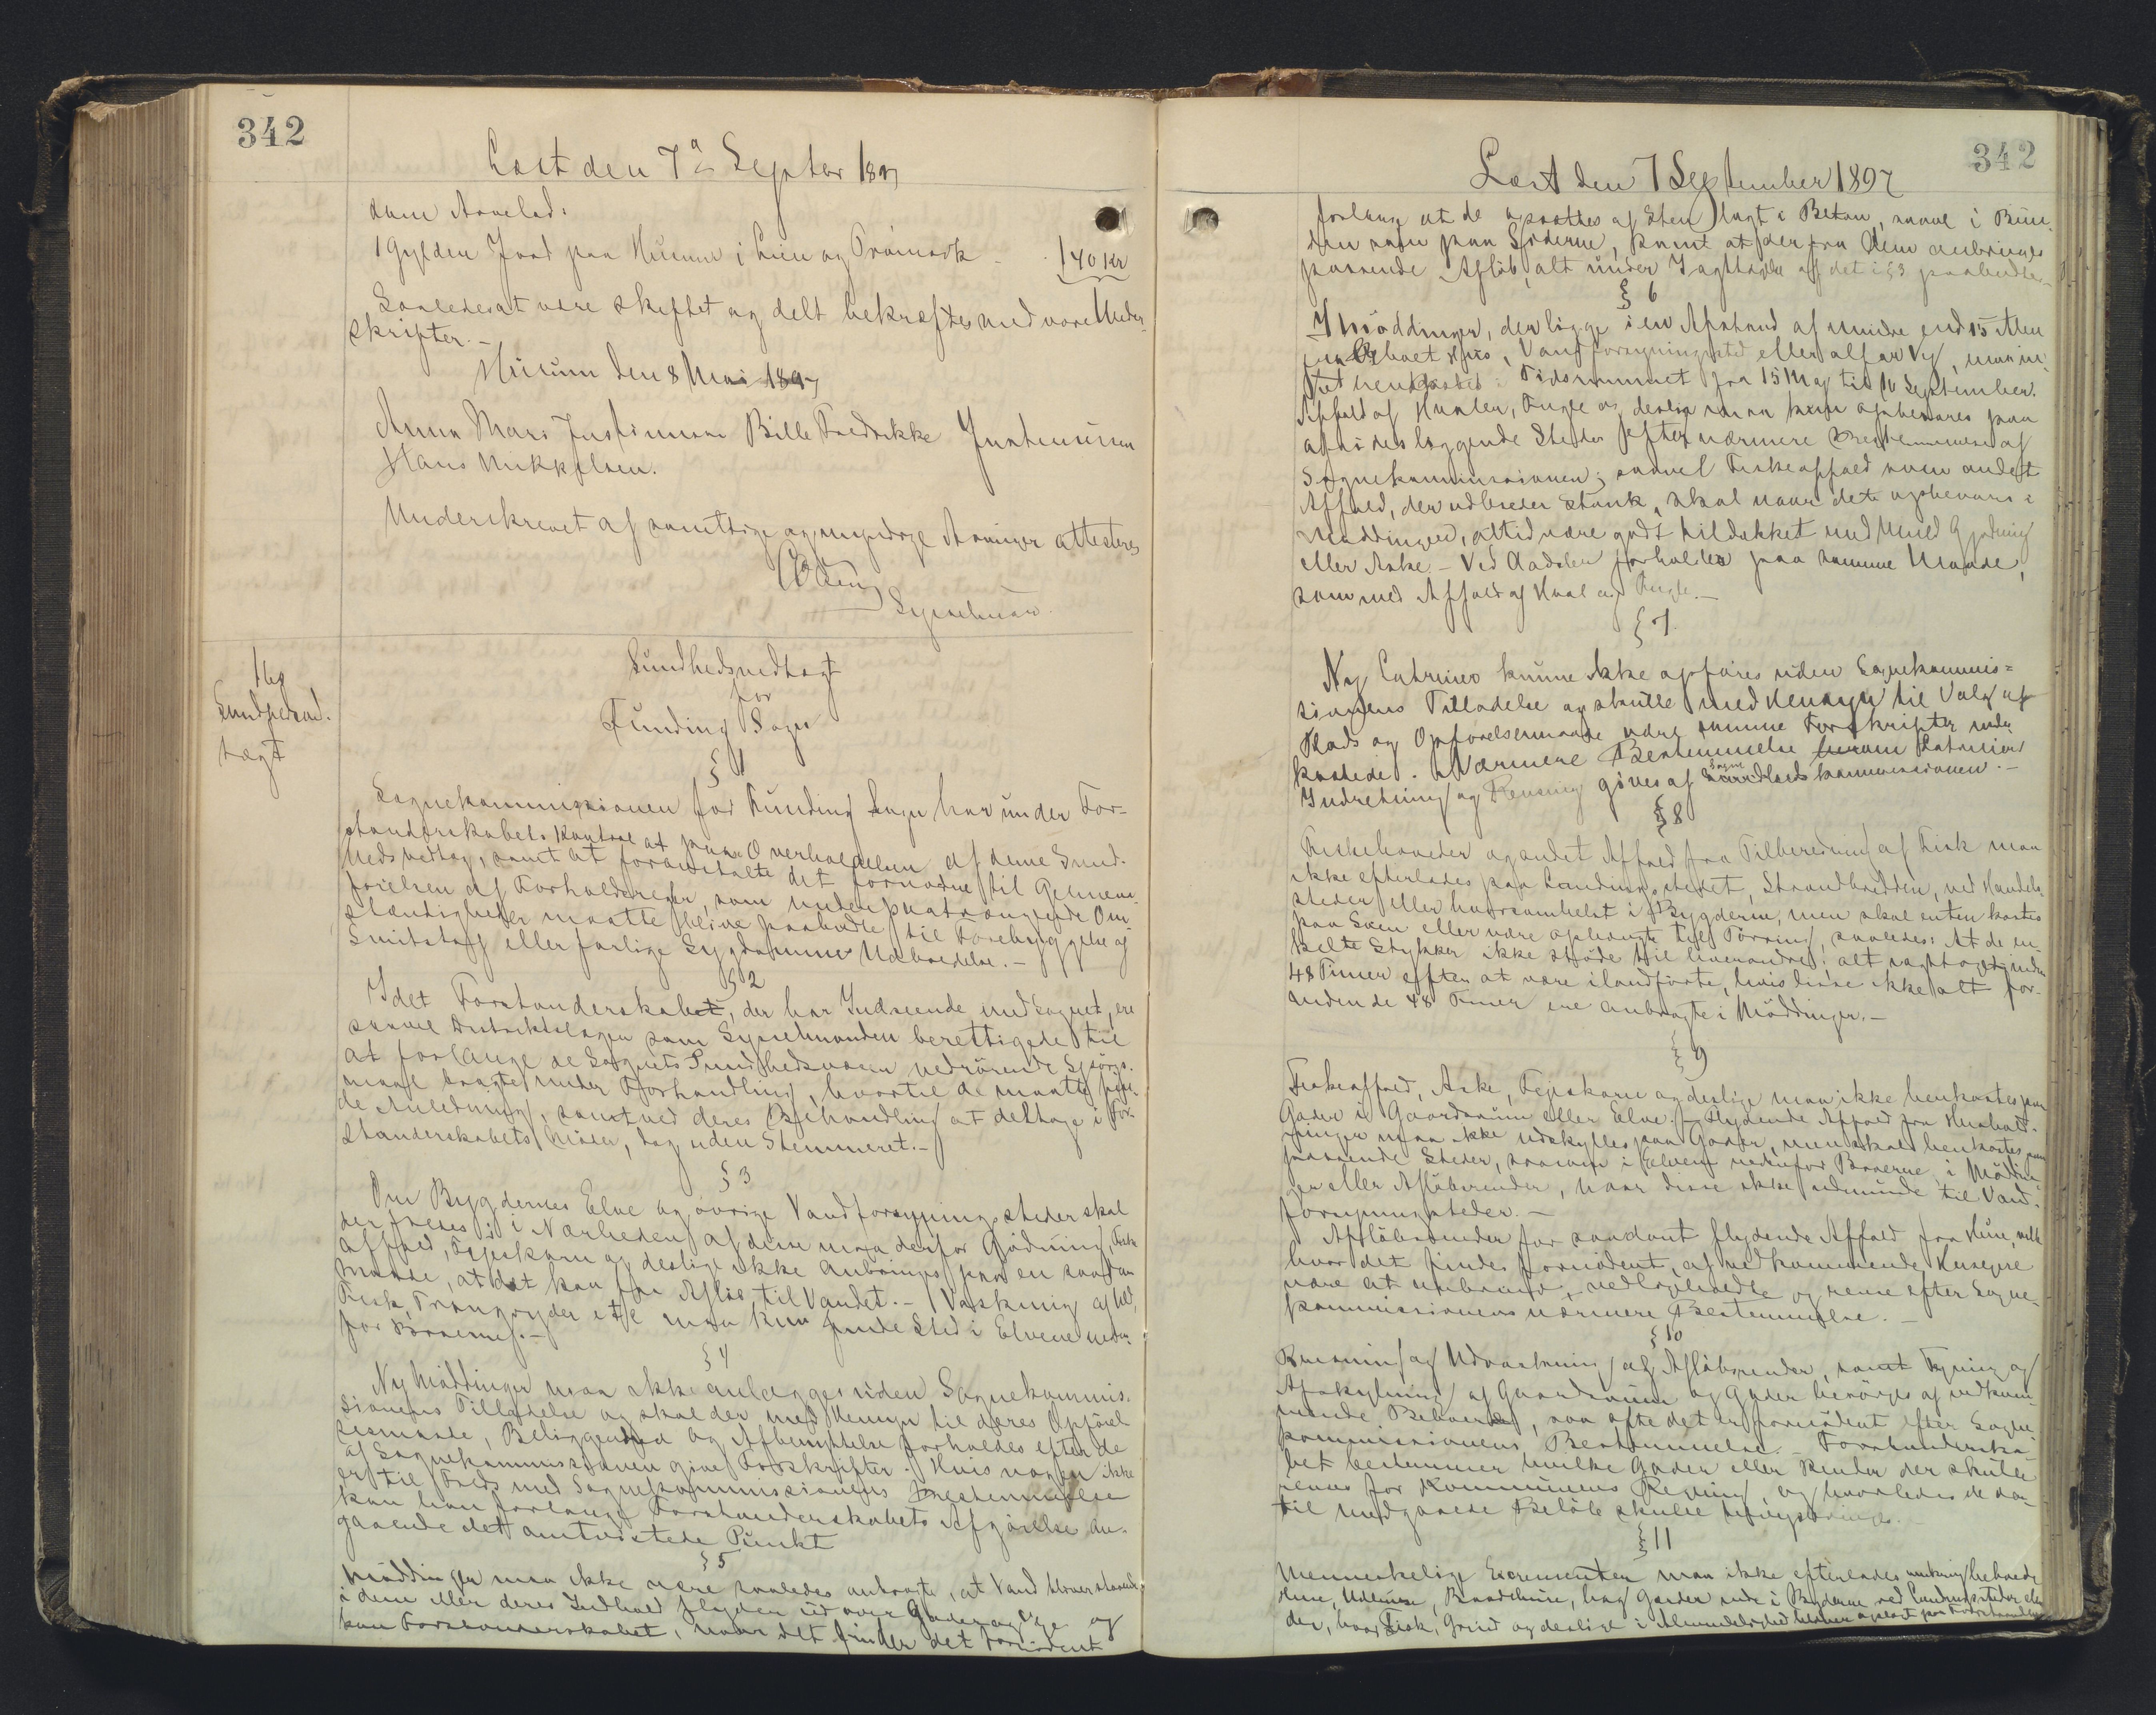 342
Læst den 7de Septbr 1897
dine Arvelod:
1 Gylden Jord paa Húsum i Lien og Trømark - 140 Kr
Saaledes at være skiftet og delt bekræftes med vore Under-
skrifter. -
Húsum den 8 Mai 1897
Anna Mari Justinusen Bille Fredrikke Justinusen
Hans Mikkelsen.
Underskrevet af samtlige og myndige Arvinger attesteres
Sysselmand.
169
Sundhedsved-
tægt
Sundhedsvedtægt
for
Funding Sogn
§ 1
Sognekommissionen for Funding Sogn har under For-
standerskabets Kontrol at paase Overholdelsen af denne Sund-
hedsvedtægt, samt at foranstalte det fornødne til Gennem-
førelsen af Forholdsregler, som under paatrængende Om-
stændigheder maatte blive paabudte til Forebyggelse af
Smitstof eller farlige Sygdommes Udbredelse. -
§ 2
I det Forstanderskabet, der har Indseende med Sognet, ere
saavel Distriktslægen som Sysselmanden berettigede til
at forlange de Sognets Sundhedsvæsen vedrørende Spørgs-
maal bragte under Forhandling, hvortil de maatte finde
Anledning, samt ved deres Behandling at deltage i For-
standerskabets Møder, dog uden Stemmeret. -
§ 3
Om Bygdernes Elve og øvrige Vandforsyningssteder skal
der fredes; i Nærheden af disse maa derfor Gødning, Fiske
affald, Fejeskarn og deslige ikke anbringes paa en saadan
Maade, at det kan faa Afløb til Vandet. - Vaskning af Uld,
Fisk, Trangryder etc maa kun finde Sted i Elvene neden-
for Broerne. -
§ 4
Ny Møddinger maa ikke anlægges uden Sognekommis-
sionens Tilladelse og skal der med Hensyn til deres Opførel-
sesmaade, Beliggenhed og Afbenyttelse forholdes efter de
af Sognekommissionen givne Forskrifter. Hvis nogen ikke
er til Freds med Sognekommissionens Bestemmelse
kan han forlange Forstanderskabets Afgørelse an-
gaaende det omtvistede Punkt
§ 5
Møddinger maa ikke være saaledes anbragte, at Vand bliver staaende
i dem eller deres Indhold flyder ud over Gader og Veje og
kan Forstanderskabet, naar det finder det fornødent
342
Læst den 7 September 1897
forlange at de opsættes af Sten lagt i Beton, saavel i Bun-
den som paa Siderne, samt at der fra dem anbringes
passende Afløb, alt under Iagttagelse af det i § 3 paabudte. -
§ 6
I Møddinger, der ligge i en Afstand af mindre end 15 Alen
fra beboet Hus, Vandforsyningssted eller alfar Vej, maa in-
tet henkastes i Tidsrummet fra 15 Maj til 14 September.
Affald af Hvaler, Fugle og deslige maa kun opbevares paa
afsides liggende Steder efter nærmere Bestemmelse af
Sognekommissionen; saavel Fiskeaffald som andet
Affald, der udbreder Stank, skal naar dete opbevares i
Møddinger, altid være godt tildækket med Muld Gødning
eller Aske. - Ved Aadsler forholdes paa samme Maade,
som med Affald af Hval og Fugle. -
§ 7.
Ny Latriner kunne ikke opføres uden Sognekommis=
sionens Tilladelse og skulle med Hensyn til Valg af
Plads og Opførelsesmaade være samme Forskrifter under
kastede. Nærmere Bestemmelse Latriner
Indretning og Rensning gives af Sogne kommissionen. -
§ 8
Fiskehoveder og andet Affald fra Tilberedning af Fisk maa
ikke efterlades paa Landingsstedet, Strandbredden, ved Handels-
steder eller hvorsomhelst i Bygderne, men skal enten kastes
paa Søen eller være ophængte til Tørring, saaledes: At de en-
kelte Stykker ikke støde til hverandre; alt inden
48 Timer efter at være ilandførte, hvis disse ikke alt for-
inden de 48 Timer ere anbragte i Møddinger. -
§ 9
Fiskeaffald, Aske, Fejeskarn og deslige maa ikke henkastes paa
Gader i Gaardsrúm eller Elve. - Flydende Affald fra Hushold-
ninger maa ikke udskylles paa Gader, men skal henkastes paa
passende Steder, saasom i Elvene nedenfor Broerne, i Møddin-
ger eller Afløbsrender, naar disse ikke udmunde til Vand-
forsyningssteder. -
Afløbsrender for saadant flydende Affald fra Huse, ville
hvor det findes fornødent, af vedkommende Husejere
være at anbringe, vedligeholde og rense efter Sogne-
kommissionens nærmere Bestemmelse. -
§ 10
Rensning og Udvaskning af Afløbsrender, samt Fejning og
Afskylning af Gaardsrúm og Gader besørges af vedkom-
mende Beboere, saa ofte det er fornødent efter Sogne-
kommissionens Bestemmelse. - Forstanderska-
bet bestemmer hvilke Gader eller Render der skulle
renses for Kommunens Regning, og hvorledes de der-
til medgaaede Beløb skulle
§ 11
Menneskelige Excrementer maa ikke efterlades omkring beboede
Huse, Udhuse, Baadehuse, bag Gærder inde i Bygderne ved Landingssteder eller
der, hvor Fisk, Grind og deslige i Almindelighed bliver oplagt paa